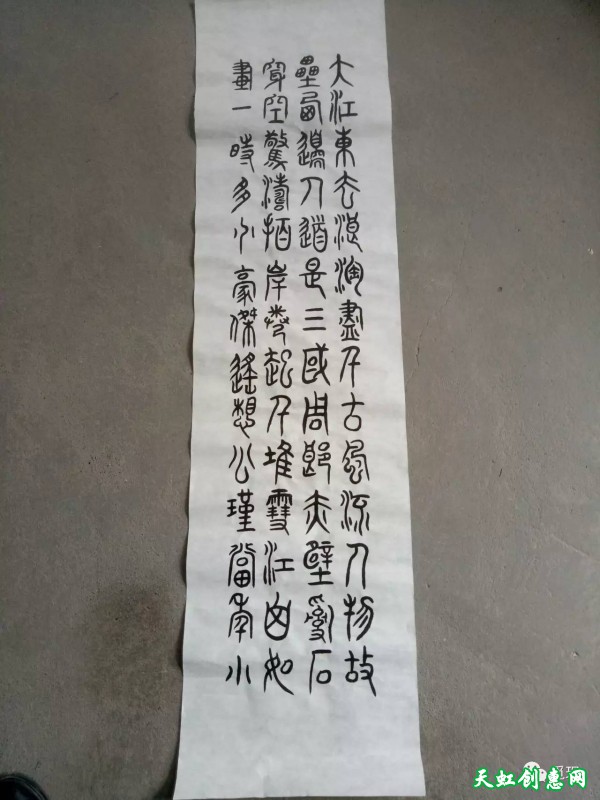 大江東去浪淘盡千古風流人物故
壘西邊人道是三國周郎赤壁亂石
穿空驚濤拍岸卷起千堆雪江山如
畫一時多少豪傑遙想公瑾當年小
天虹创惠网